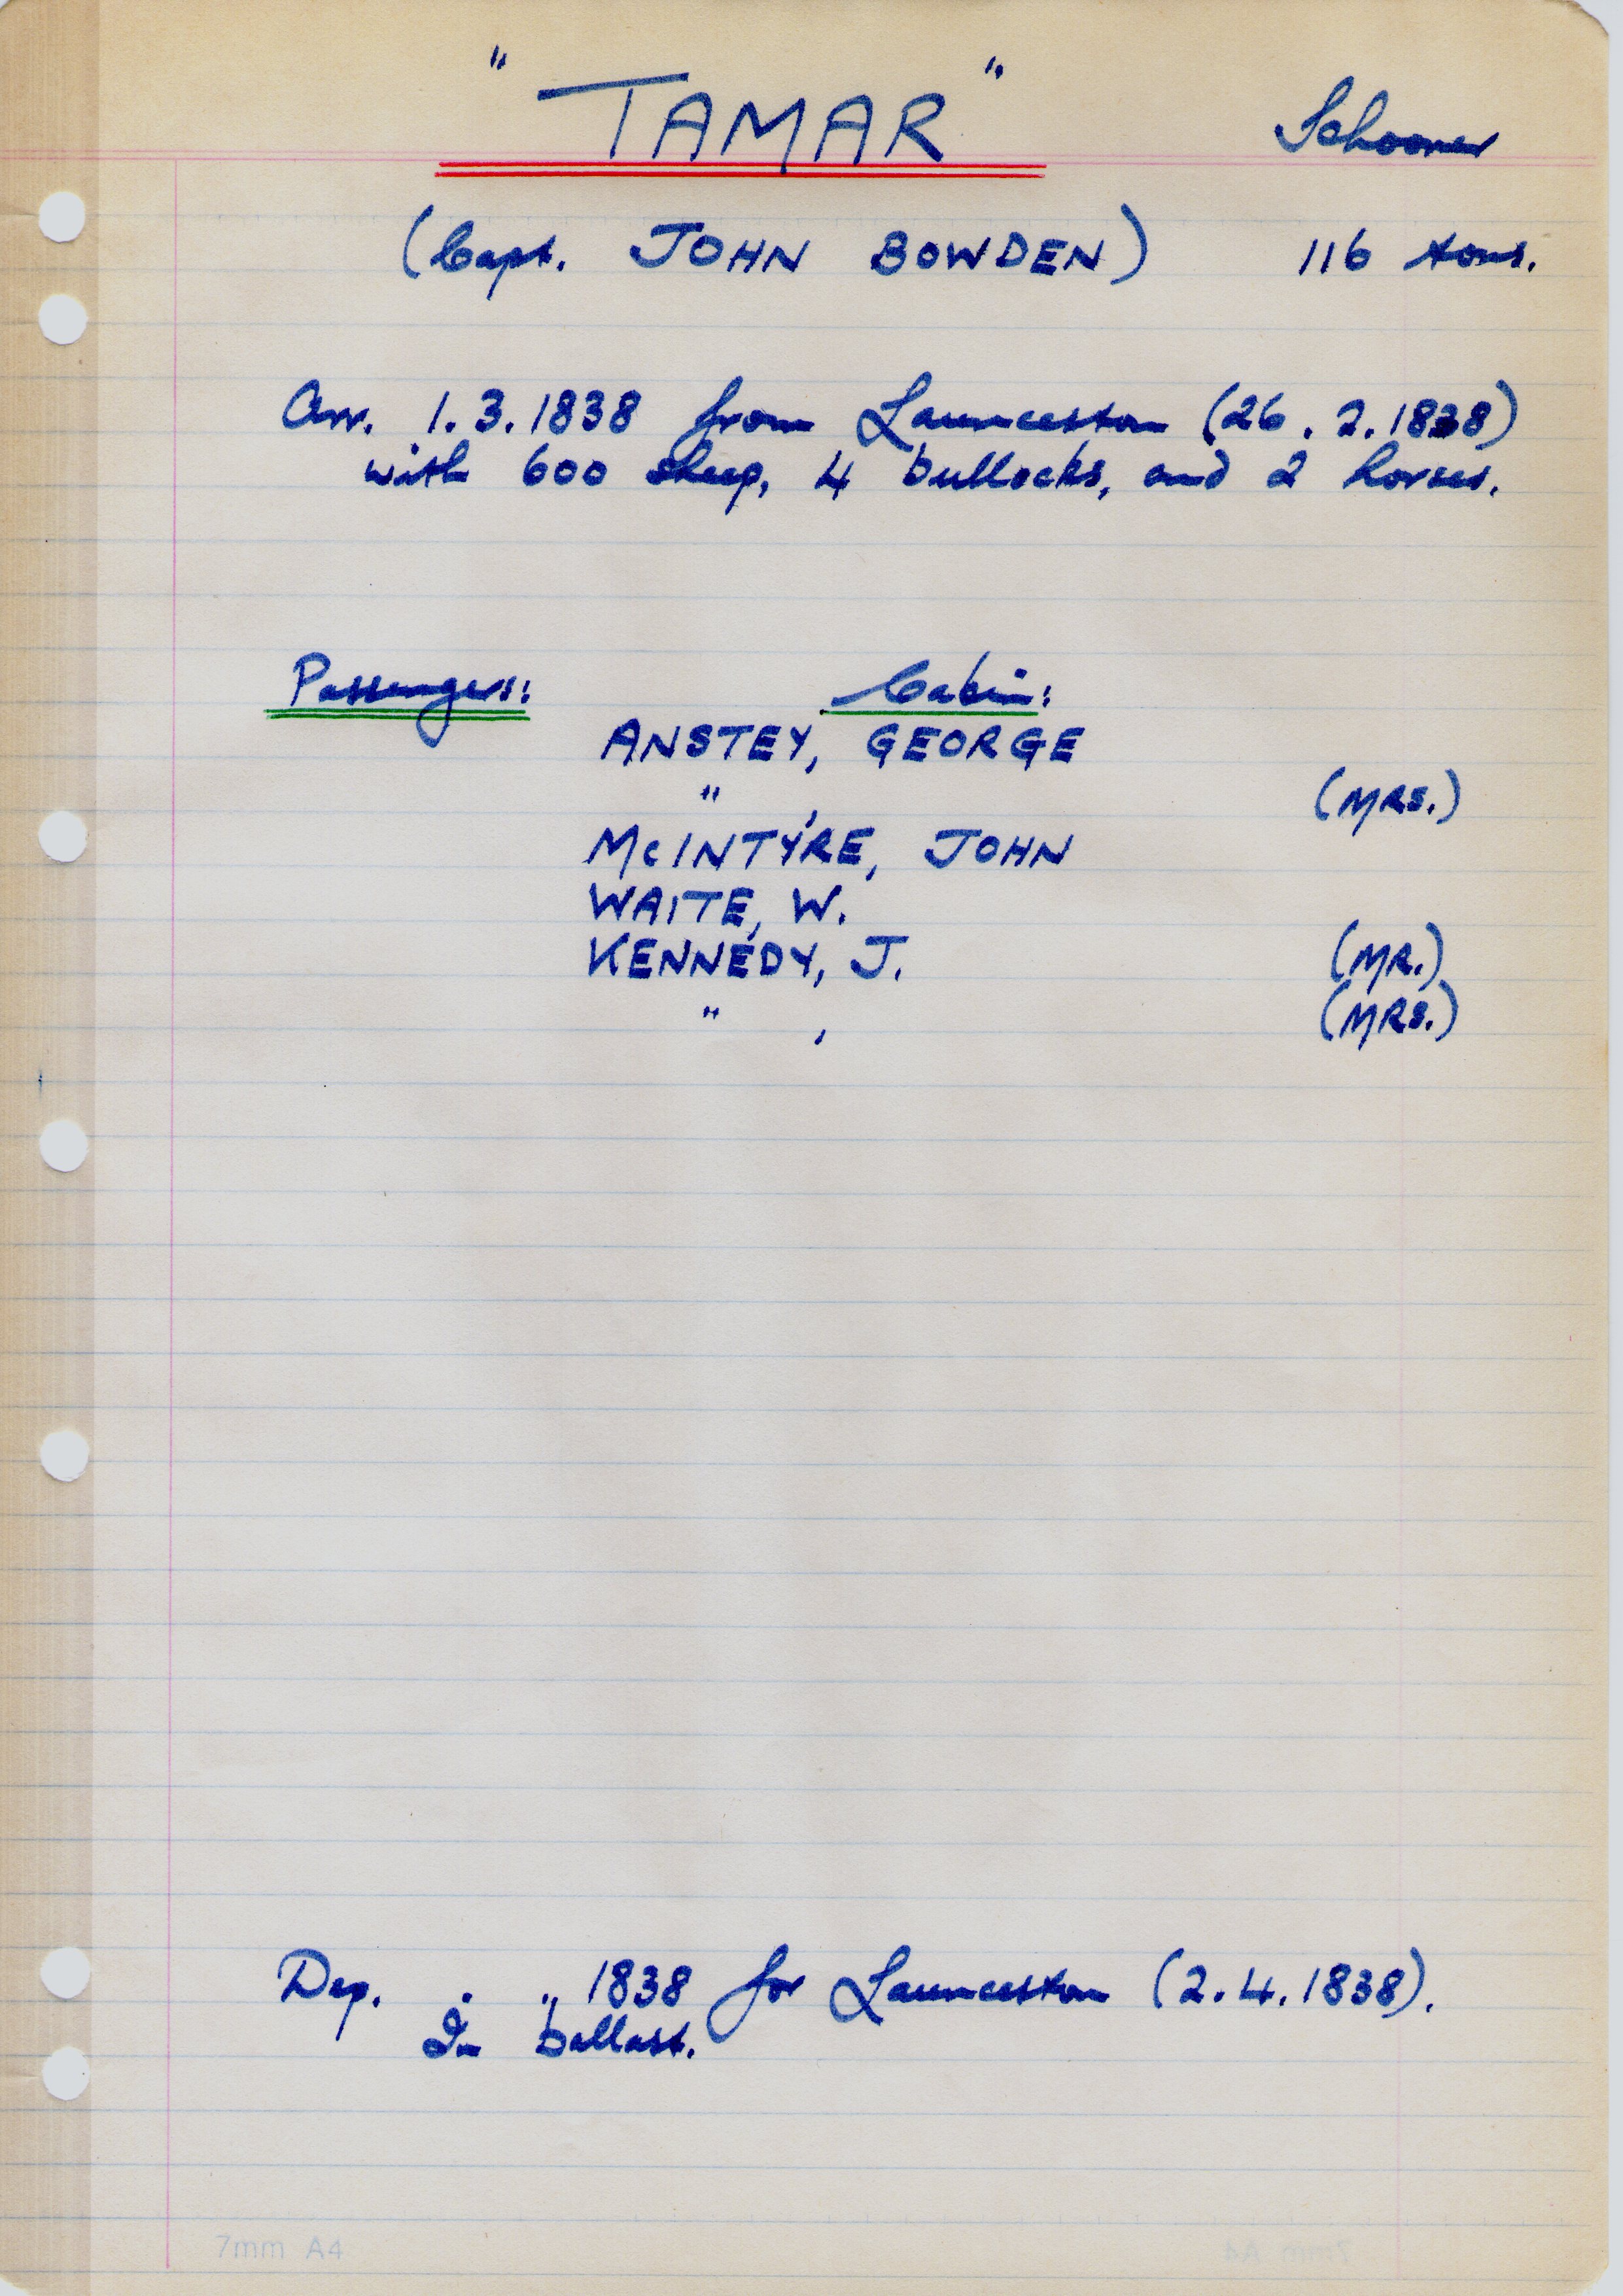 "TAMAR" Schooner
(Capt. JOHN BOWDEN) 116 tons.
Arr. 1.3.1838 from Launceston (26.2.1838)
with 600 sheep, 4 bullocks, and 2 horses.
Passengers: Cabin:
ANSTEY, GEORGE
" , (MRS.)
McINTYRE, JOHN
WAITE, W.
KENNEDY, J. (MR.)
" , (MRS.)
Dep. . . 1838 for Launceston (2.4.1838).
In ballast.
7mm A4